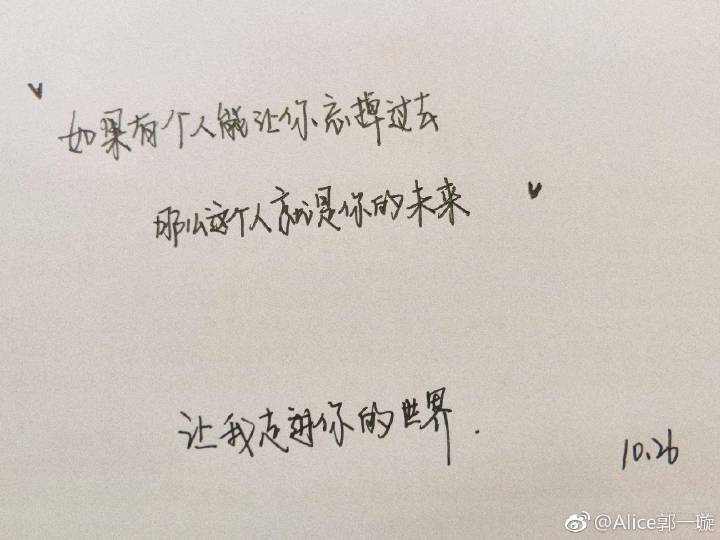 如果有个人能让你忘掉过去
那么这个人就是你的未来
让我走进你的世界.
10.26
@Alice郭一璇